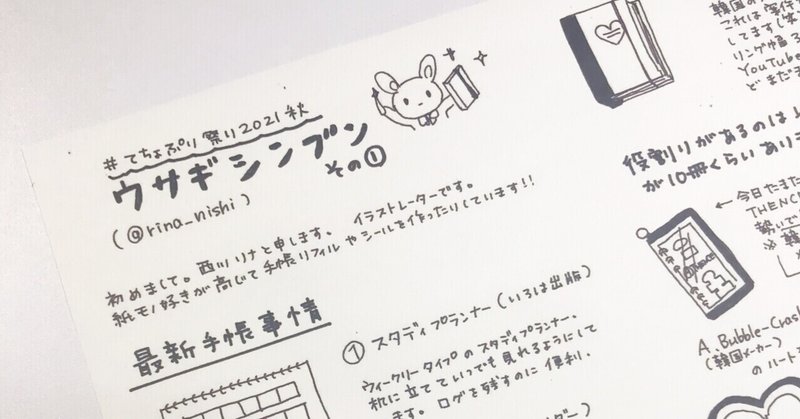 #てちょぷり祭り2021秋
ウサギシンブン
その①
(@rina_nishi)
初めまして。西川リナと申します。 イラストレーターです。
紙モノ好きが高じて手帳リフィルやシールを作ったりしています!!
最新手帳事情
① スタディプランナー(いろは出版)
ウィークリータイプのスタディプランナー。
机に立てていつでも見れるようにして
ます。ログを残すのに便利.
これは
してます
リング
YouTube
どまだま
役割りがあるのは
が10冊くらいあり
← 今日たまた
THENC
勢いで
※韓
A. Bubble-Crash
(韓国メーカー)
のルート